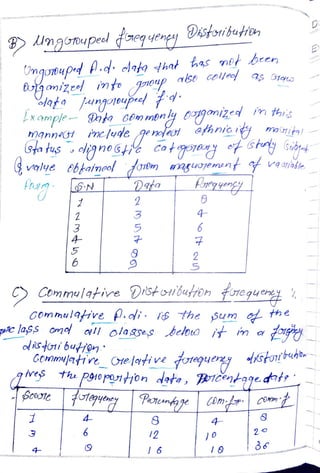 B) Ungrouped frequency Distribution
Ungrouped f.d. data that has not been
organized into group also called as Graw
data /ungrouped f.d.
Example - Data commonly organized in this
manner include gender ethnicity marital
Status, dignostic category of study subject
& value obtained from measurement of variable
S.N Data frequency
1 2 8
2 3 4
3 5 6
4 7 7
5 8 2
6 9 5
C) Commulative Distribution frequency :
Commulative f.di. is the sum of the
class and all classes below it in a
distribution.
Commulative Crelative frequency distribution
gives the proportion data, percentage data.
Score frequency Com.f
1 4 8 4 8
3 6 12 10 20
4 8 16 18 36